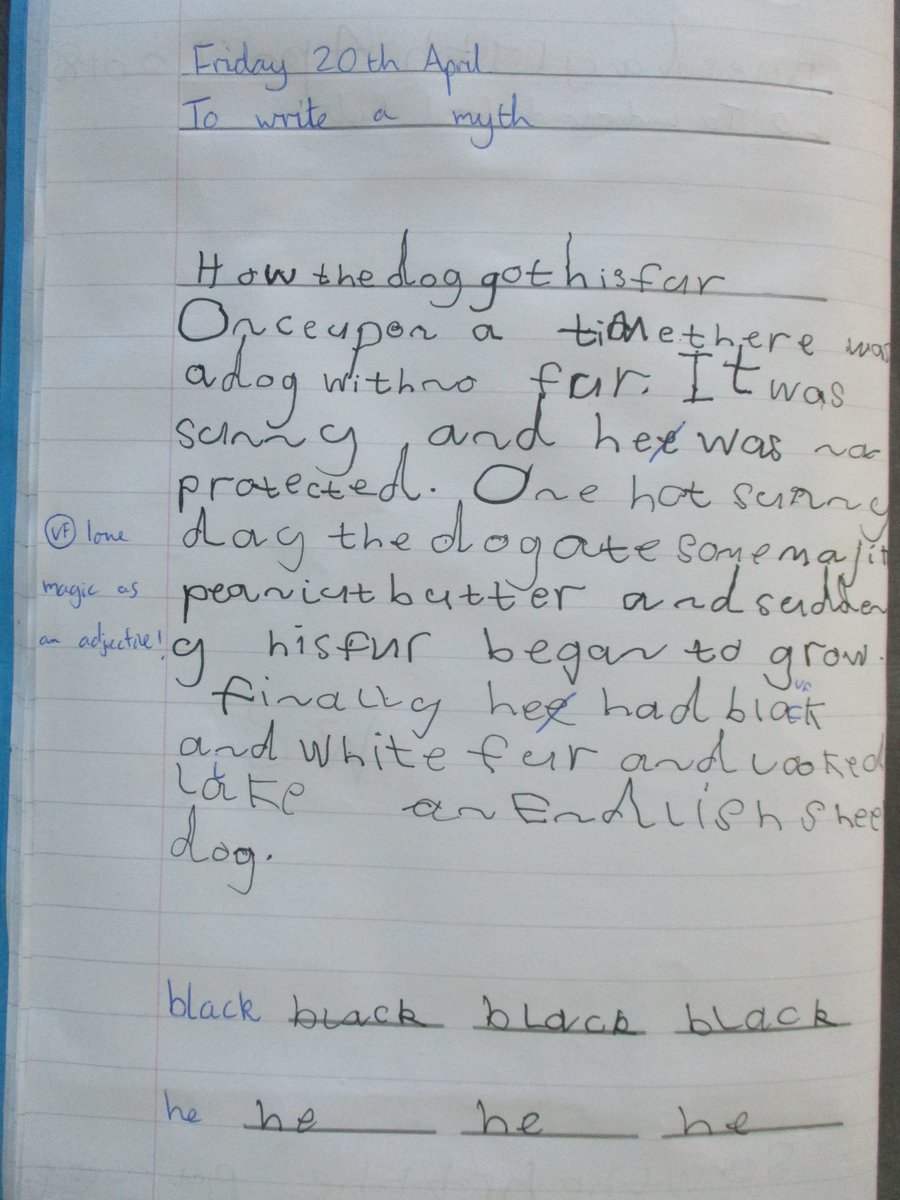 Friday 20th April
To write a myth
How the dog got his fur
Once upon a time there was
a dog with no fur. It was
sunny, and hee was no
protected. One hot sunny
day the dog ate some majit
peaniut butter and sudden
y his fur began to grow.
finally hee had black
and white fur and looked
like an Endlish shee
dog.
VF love
magic as
an adjective!
black black black black
he he he he